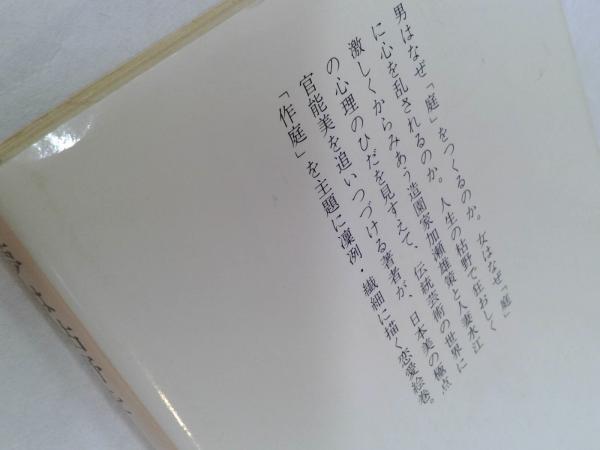 男はなぜ「庭」をつくるのか。女はなぜ「庭」
に心を乱されるのか。人生の枯野で狂おしく
激しくからみあう造園家加瀬雄策と人妻水江
の心理のひだを見すえて、伝統芸術の世界に
官能美を追いつづける著者が、日本美の極点
「作庭」を主題に凜冽・繊細に描く恋愛絵巻。